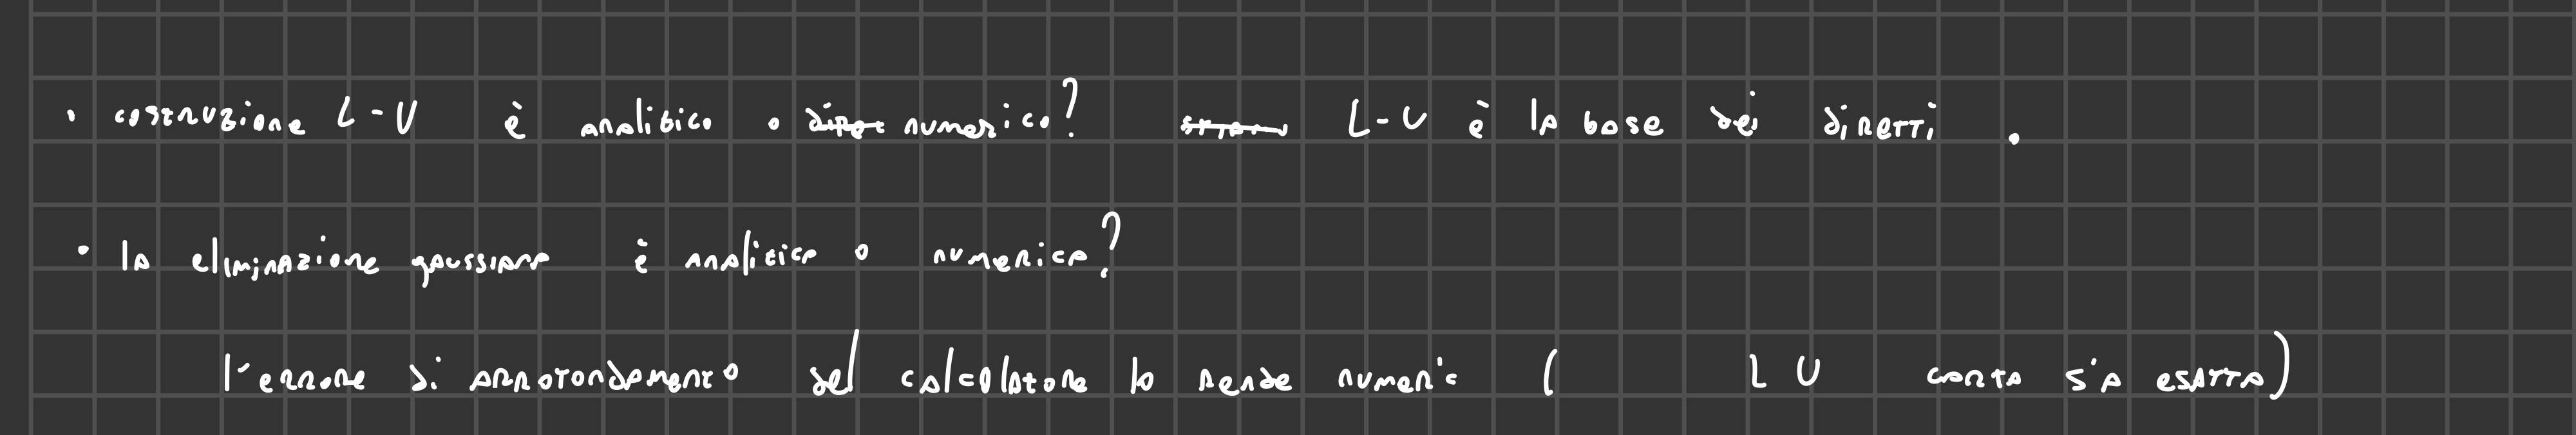 • costruzione L-U è analitico o numerico? L-U è la base dei diretti.
• la eliminazione gaussiana è analitica o numerica?
l'errore di arrotondamento del calcolatore lo rende numeric ( LU carta sia esatta)